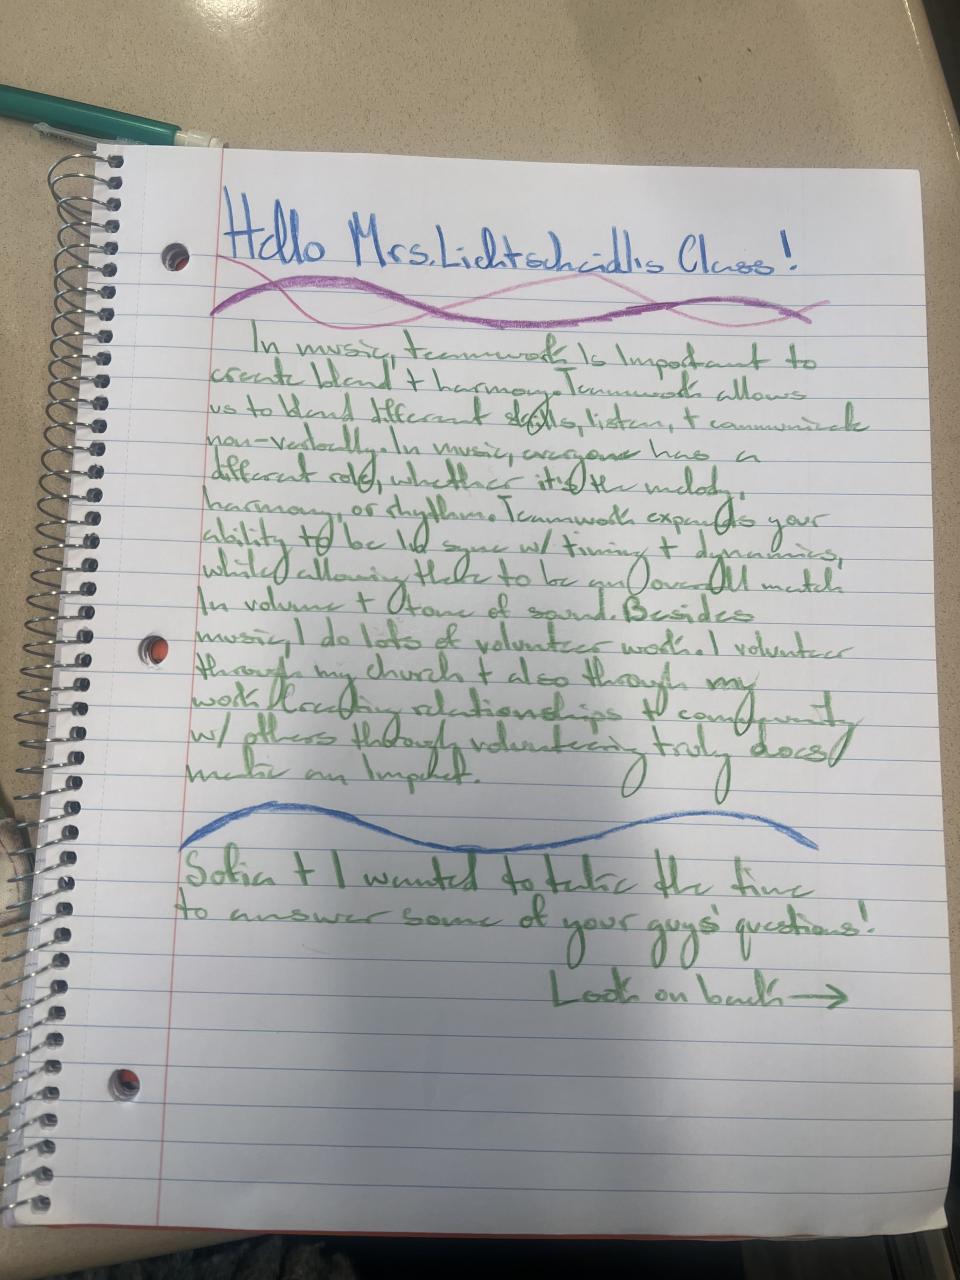 Hello Mrs. Lichtscheidl's Class!
In music, teamwork is important to
create blend + harmony. Teamwork allows
us to blend different skills, listen, + communicate
non-verbally. In music, everyone has a
different role, whether it's the melody,
harmony, or rhythm. Teamwork expands your
ability to be in sync w/ timing + dynamics,
while allowing there to be an overall match
in volume + tone of sound. Besides
music, I do lots of volunteer work. I volunteer
through my church + also through my
work. Creating relationships + community
w/ others through volunteering truly does
make an impact.
Sofia + I wanted to take the time
to answer some of your guys' questions!
Look on back →